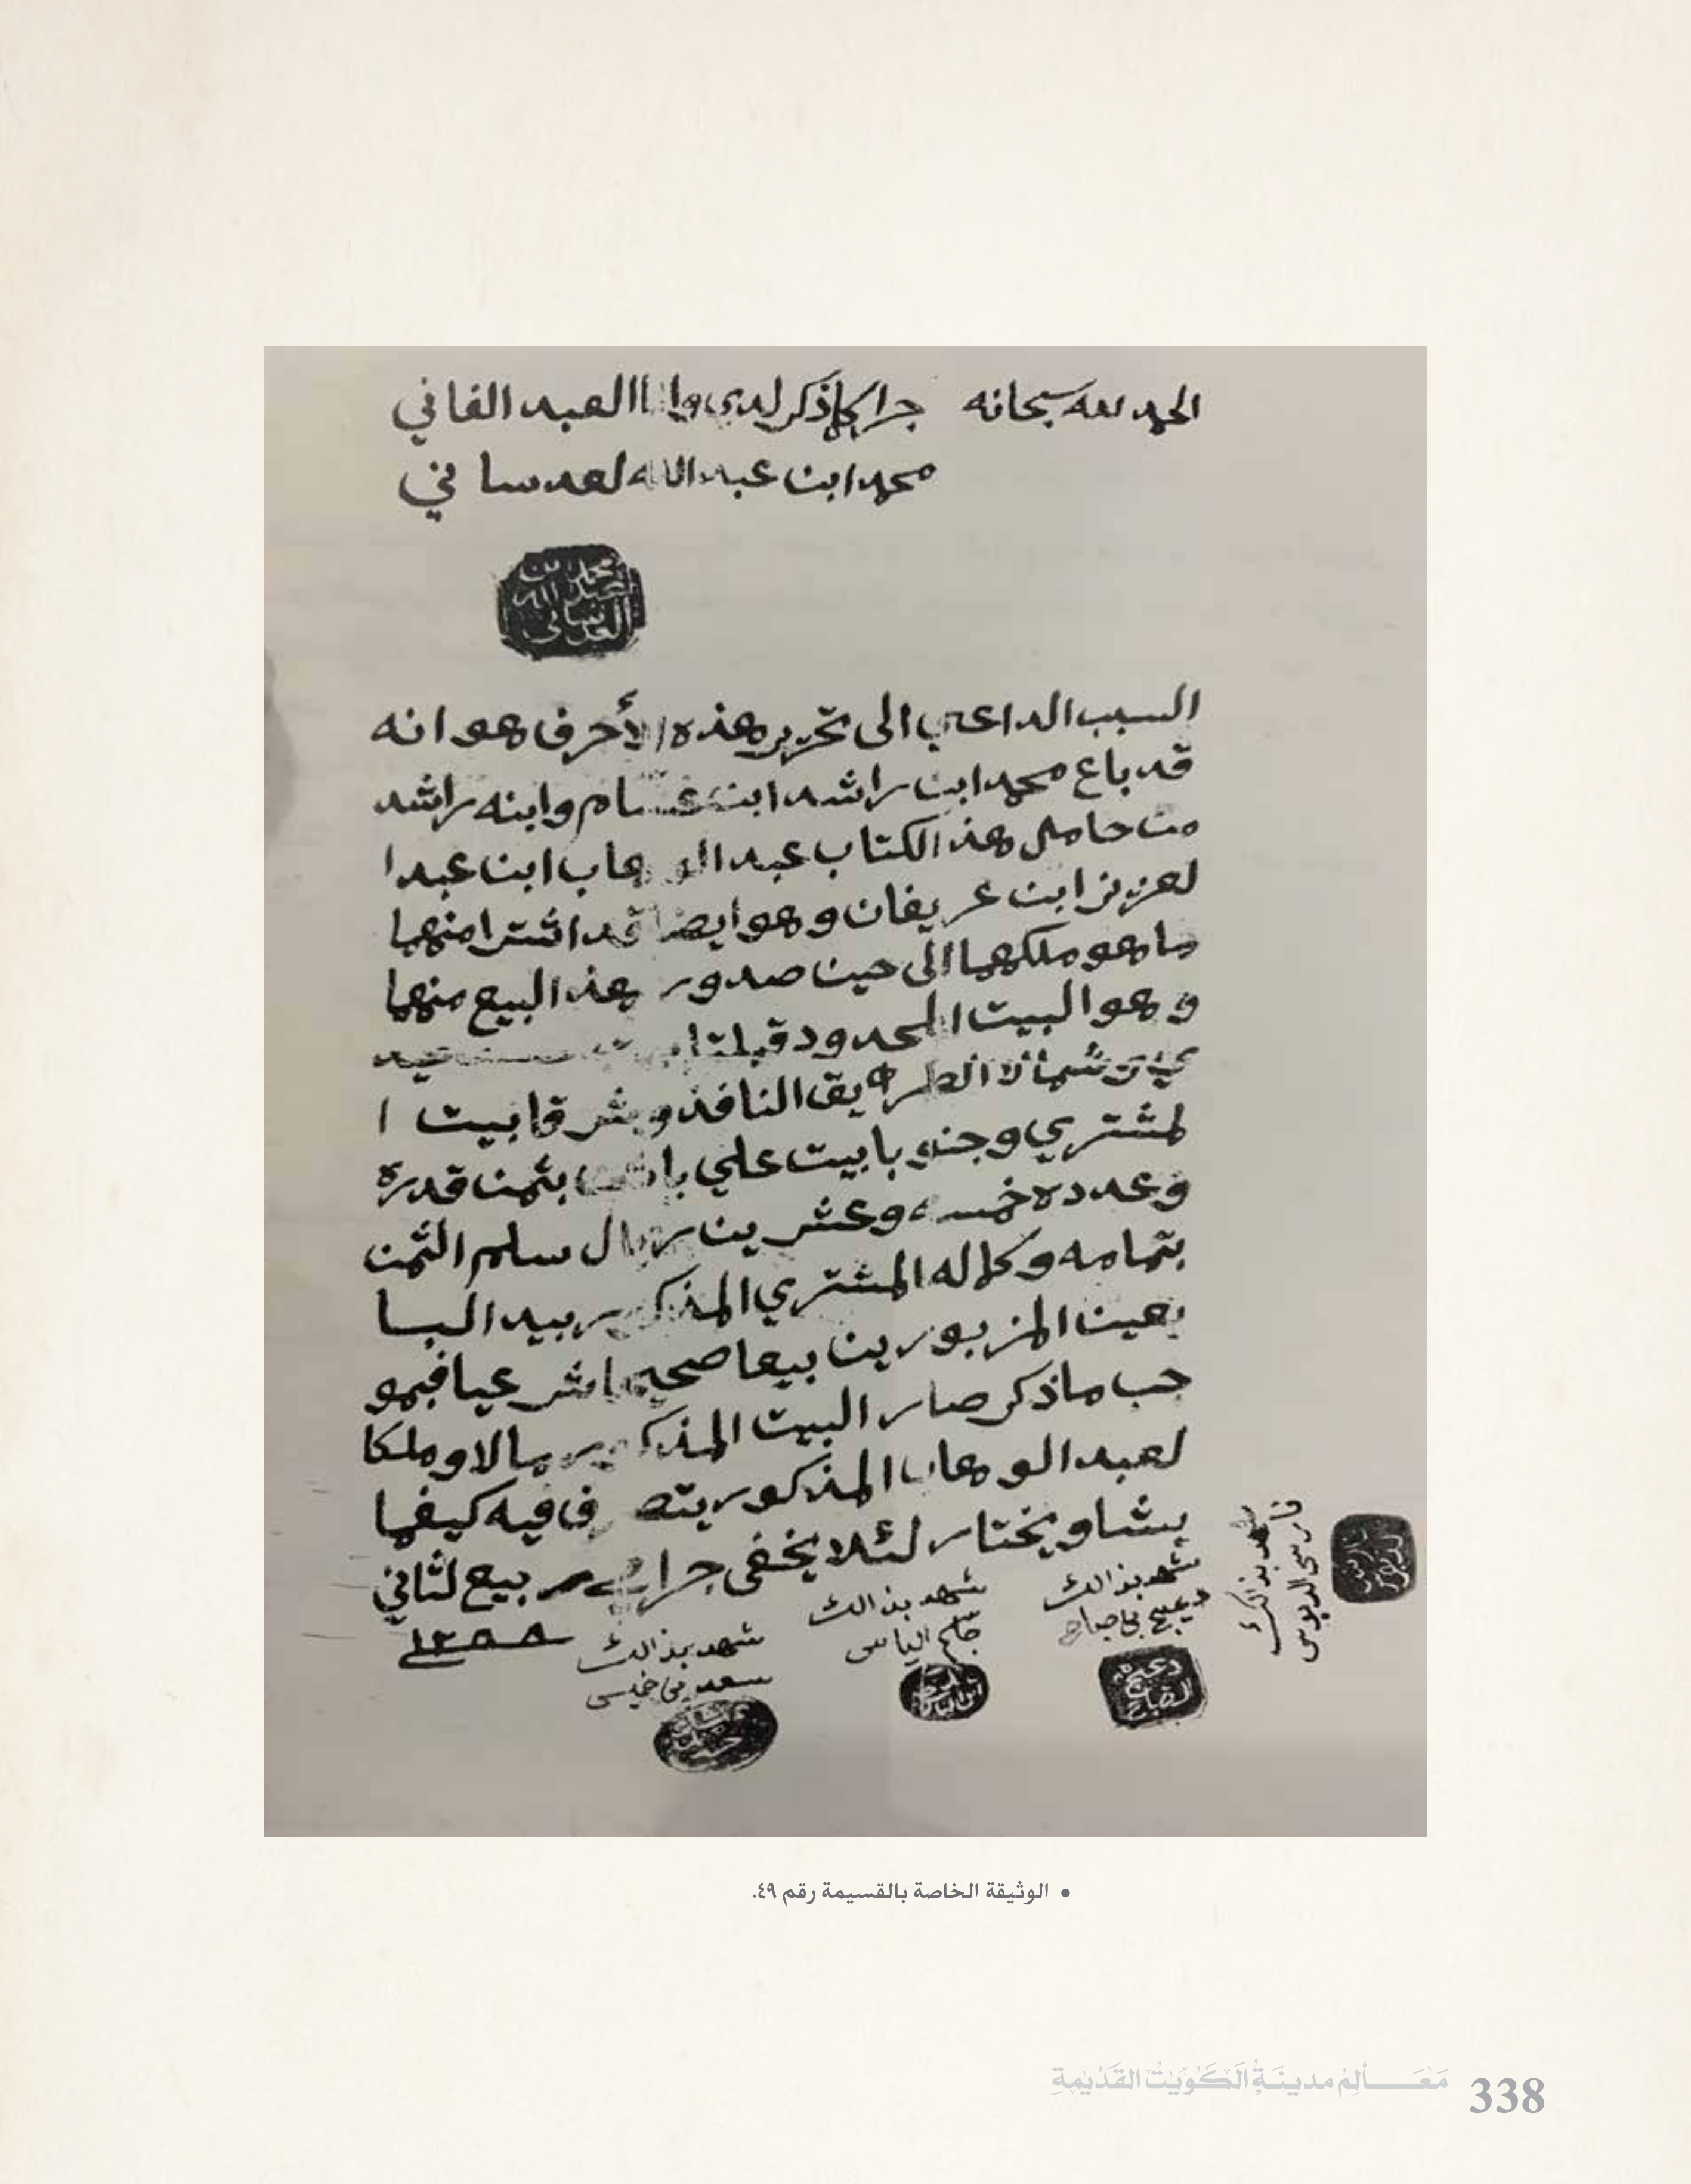 الحمد لله سبحانه جرا كما ذكر لدي وانا العبد الفاني
محمد ابن عبد الله لعدساني
محمد بن
عبد الله
العدساني
السبب الداعي الى تحرير هذه الأحرف هو انه
قد باع محمد ابن راشد ابن وابنه راشد
من حامل هذ الكتاب عبد الوهاب ابن عبد ا
لعزيز ابن عريفان وهو ايضا قد اشترا منهما
ما هو ملكهما الى حين صدور هذ البيع منهما
وهو البيت المحدود قبلتا بيت
شمالا الطريق النافذ وشرقا بيت ا
لمشتري وجنوبا بيت علي بثمن قدره
وعدده خمسه وعشرين ريال سلم الثمن
بتمامه وكماله المشتري المذكور بيد البا
يعين المزبورين بيعا صحيحا شرعيا فبمو
جب ما ذكر صار البيت المذكور مالا وملكا
لعبد الوهاب المذكور يتصرف فيه كيفما
يشا ويختار لئلا يخفى جرا في ربيع لثاني
١٢٨٨
شهد بذالك
فارس الدبوس
شهد بذالك
دعيج بن صباح
دعيج
الصباح
شهد بذالك
شهد بذالك
سعد بن خميس
• الوثيقة الخاصة بالقسيمة رقم ٤٩.
مَعَالِمُ مدينَةُ الكُوَيْتُ القَدْيمةِ 338